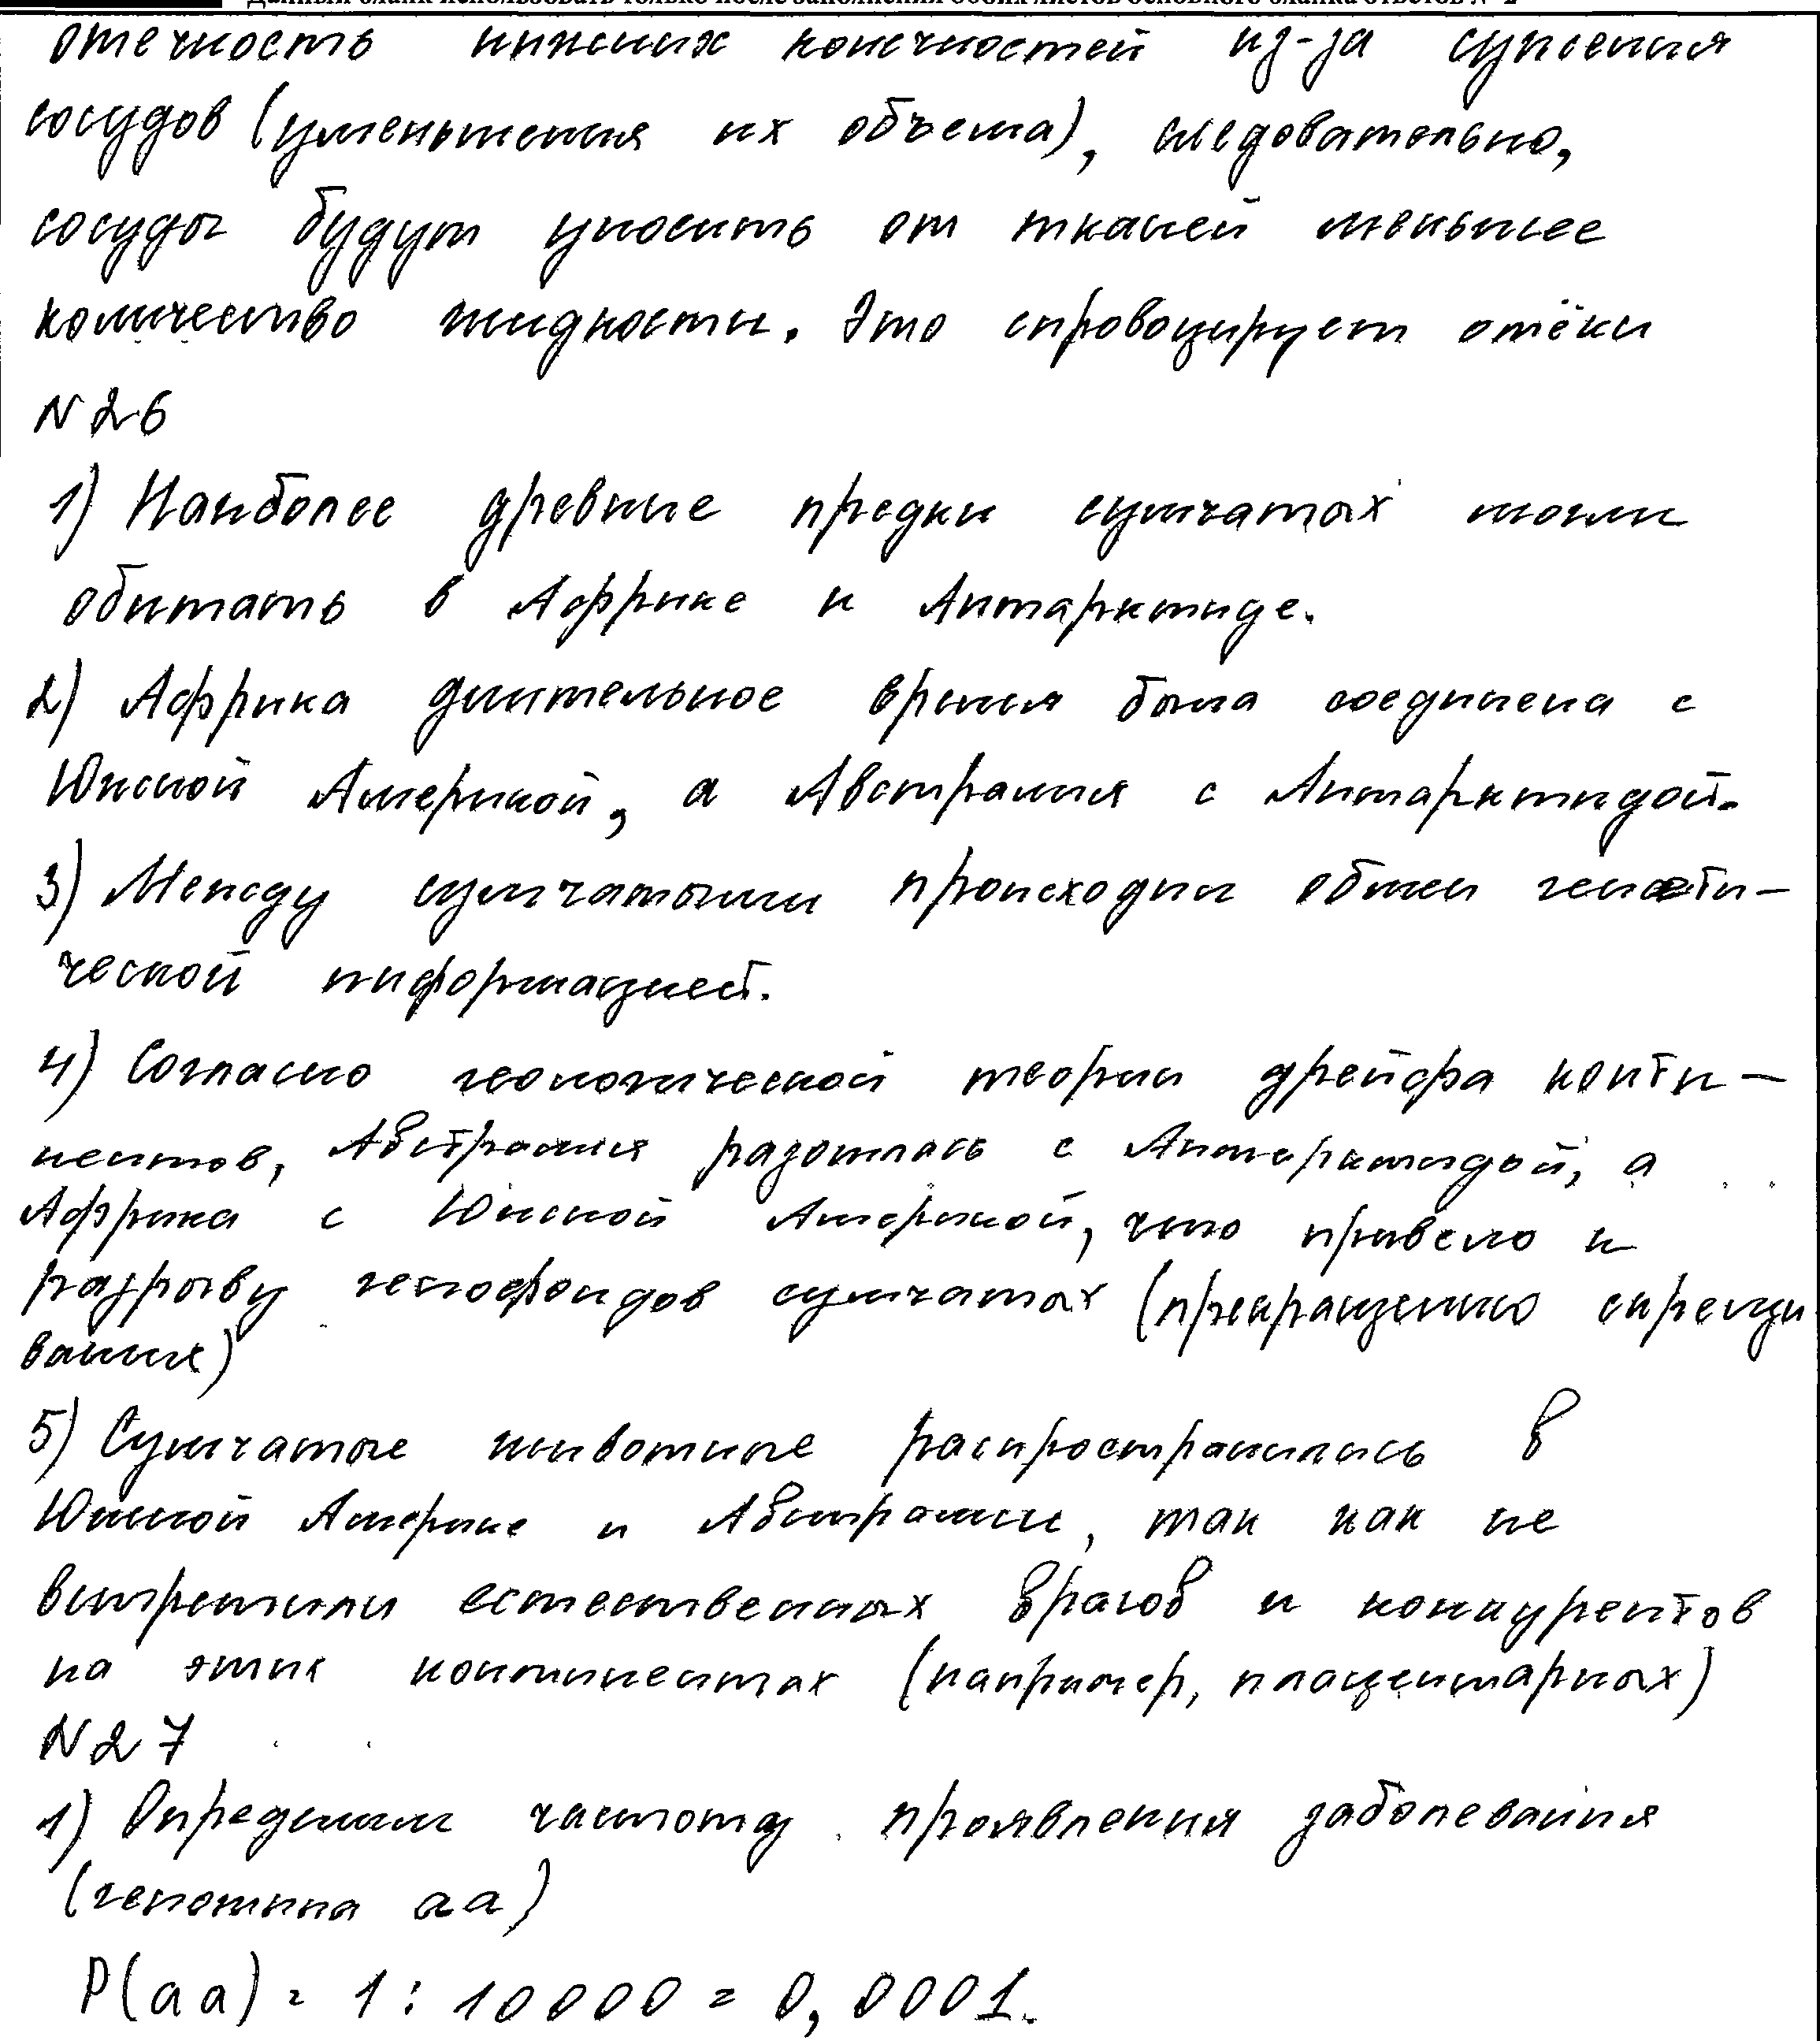 Данный бланк использовать только после заполнения обоих листов основного бланка ответов № 2
отечность нижних конечностей из-за сужения
сосудов (уменьшения их объема), следовательно,
сосуды будут уносить от тканей меньшее
количество жидкости. Это спровоцирует отёки
N 26
1) Наиболее древние предки сумчатых могли
обитать в Африке и Антарктиде.
2) Африка длительное время была соединена с
Южной Америкой, а Австралия с Антарктидой.
3) Между сумчатыми происходил обмен генети-
ческой информацией.
4) Согласно геологической теории дрейфа конти-
нентов, Австралия разошлась с Антарктидой, а
Африка с Южной Америкой, что привело к
разрыву генофондов сумчатых (прекращению скрещи
вания)
5) Сумчатые животные распространились в
Южной Америке и Австралии, так как не
встретили естественных врагов и конкурентов
на этих континентах (например, плацентарных)
N 27
1) Определим частоту проявления заболевания
(генотипа aa)
P(aa) = 1 : 10000 = 0,0001.